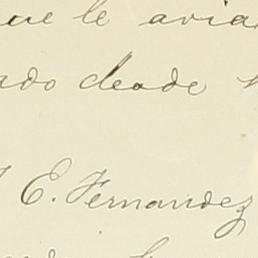 que le avia
ado desde
E. Fernandez